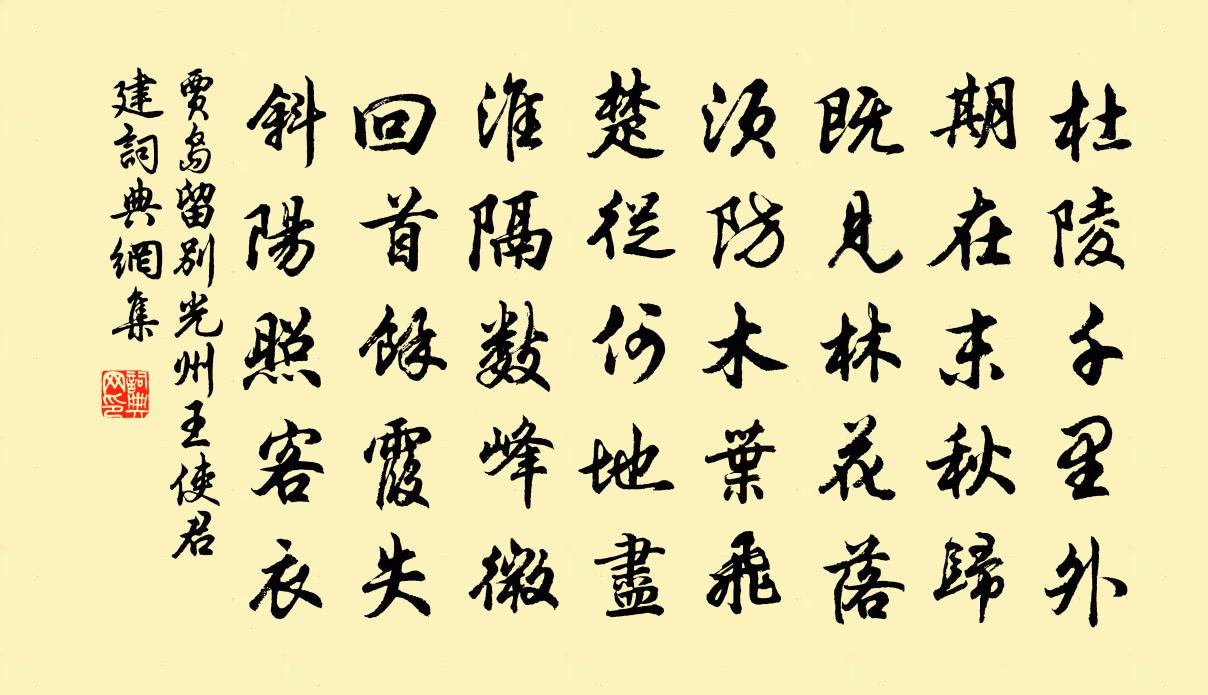 杜陵千里外
期在末秋歸
既見林花落
須防木葉飛
楚從何地盡
淮隔數峰微
回首餘霞失
斜陽照客衣
賈島留別光州王使君
建詞典網集
詞典
网印